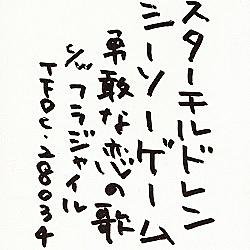 スターチルドレン
シーソーゲーム
勇敢な恋の歌
c/w フラジャイル
TFDC-28034